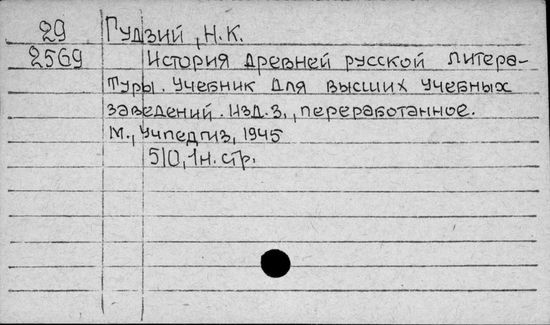 29 Гудзий, Н.К.
2569 История древней русской литера-
туры. Учебник для высших учебных
заведений. Изд. 3., переработанное.
М., Учпедгиз, 1945
510, 1н. стр.